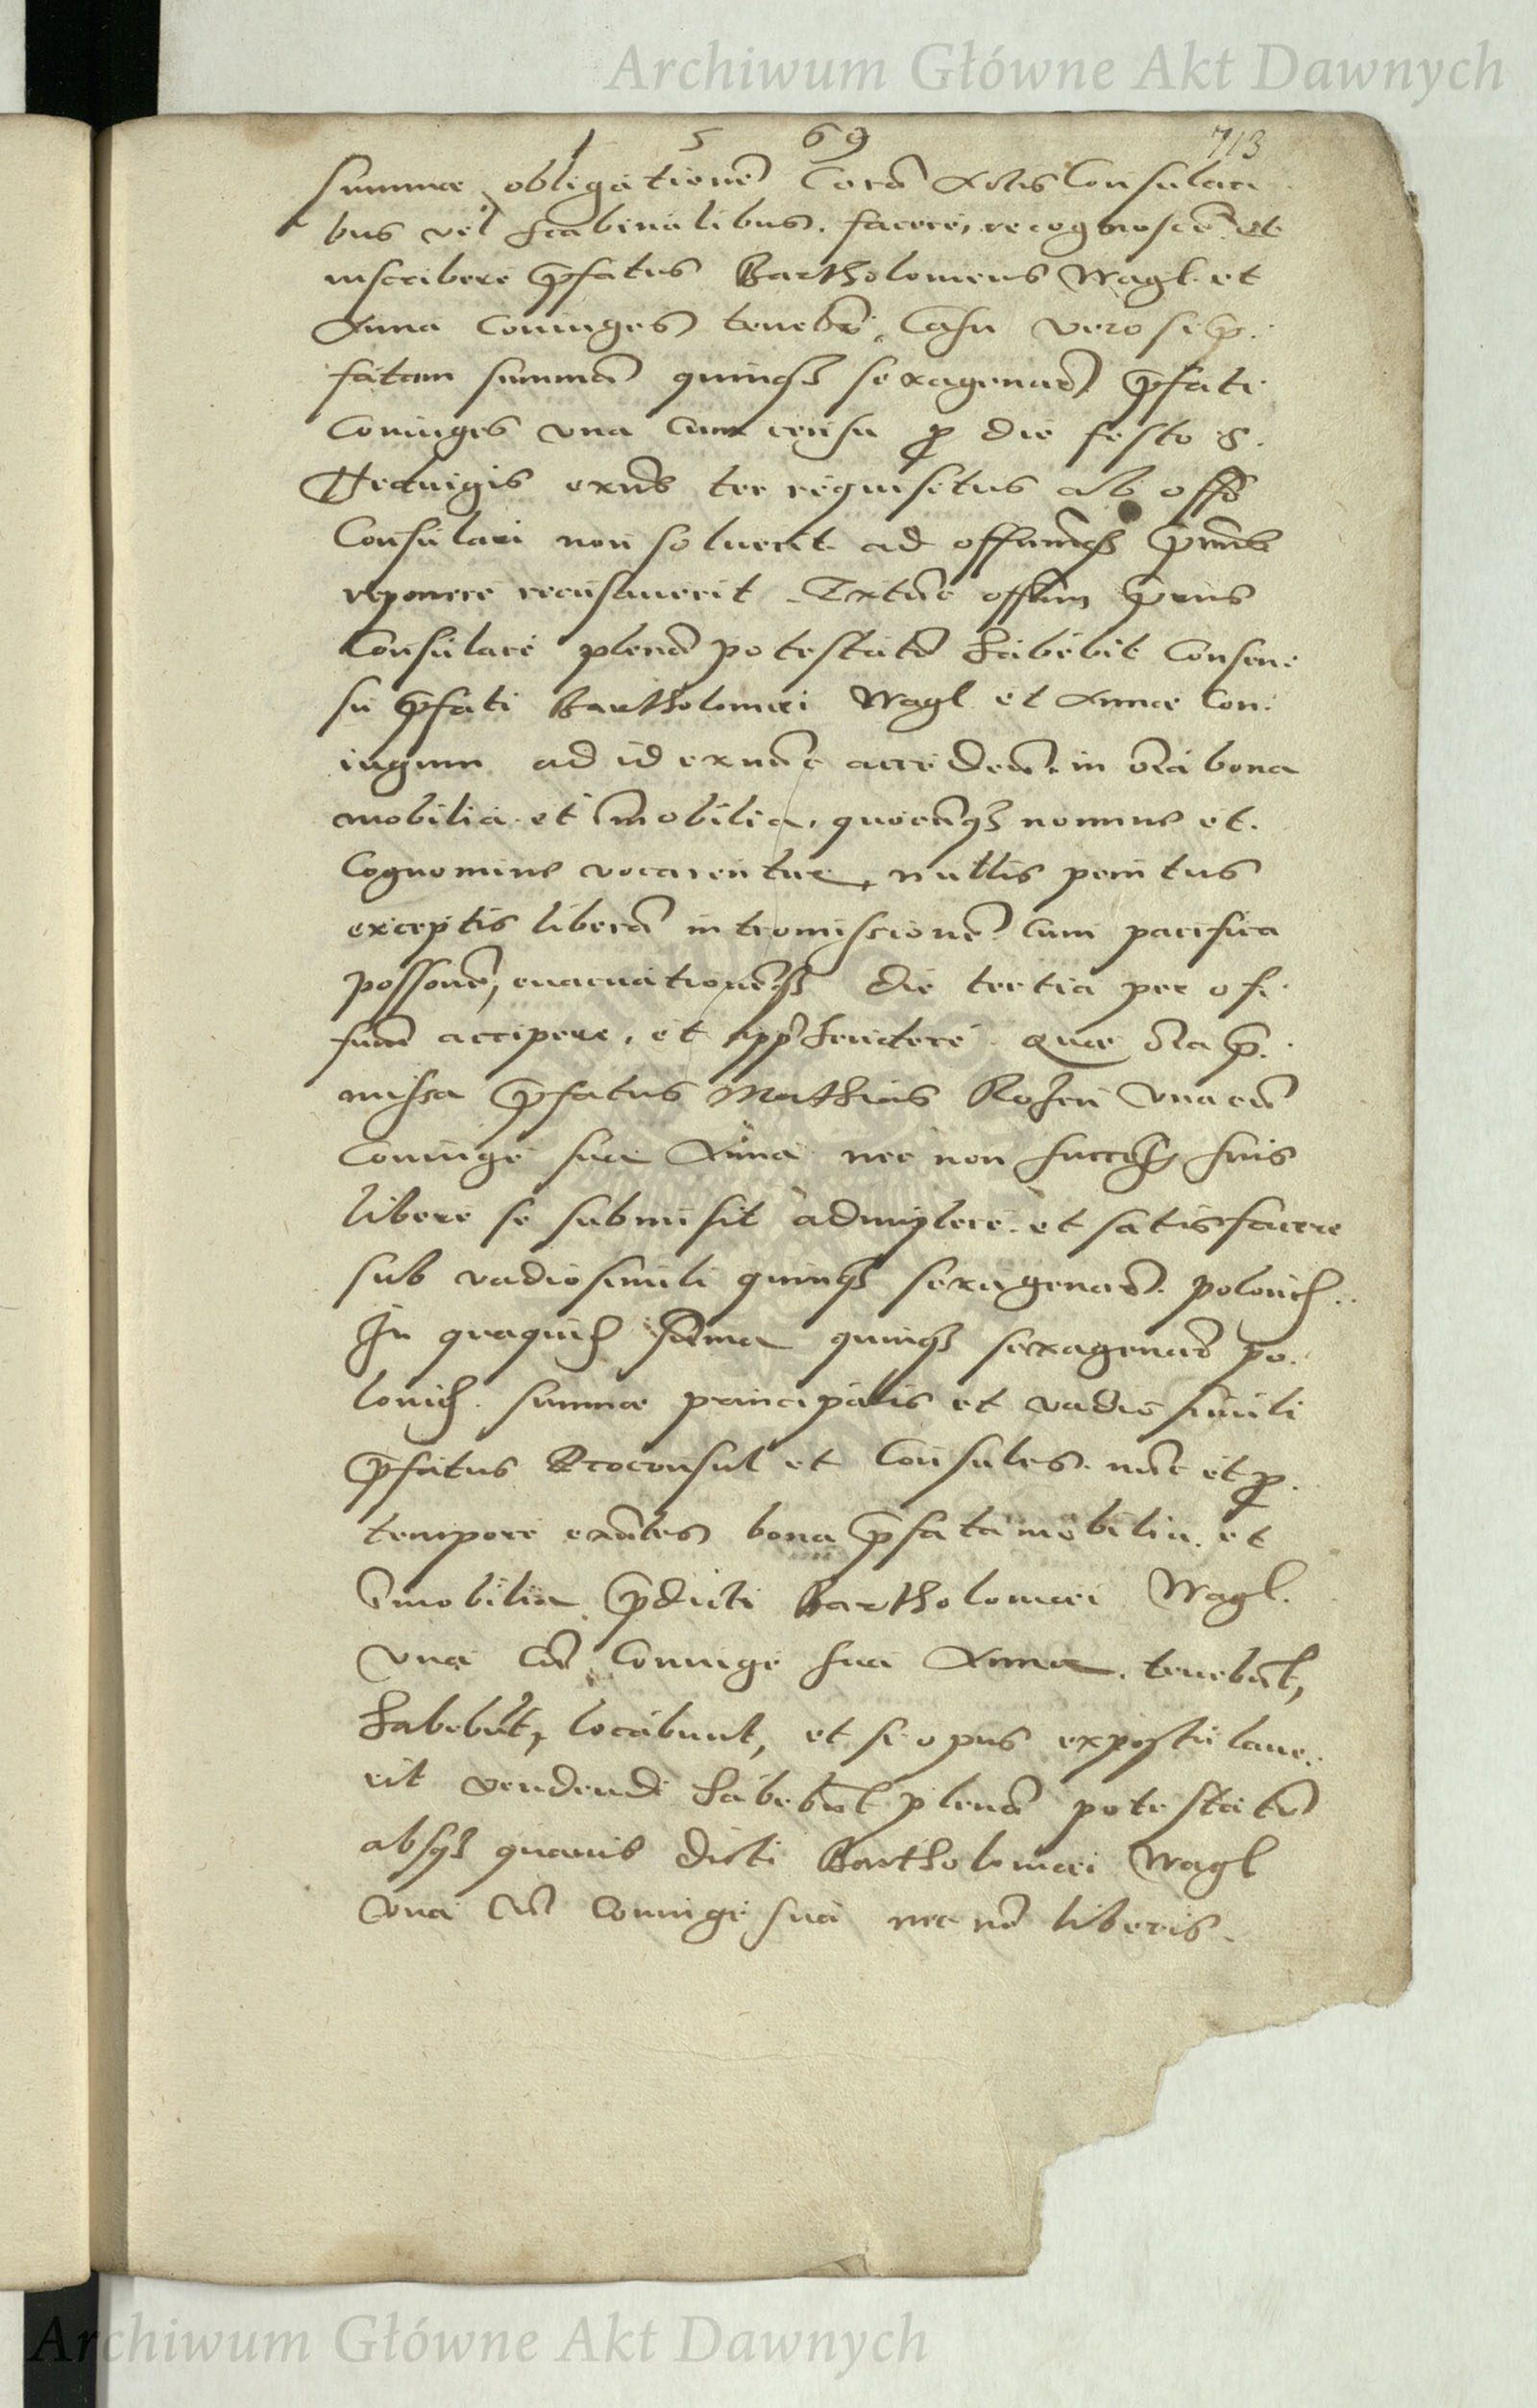 Archiwum Główne Akt Dawnych
1 5 69 713
summæ obligationē Corā Actis Consulari
bus vel scabinalibus. facere, recognoscē et
inscribere p̄fatus Bartholomeus Wagl. et
Anna Coniuges tenebūr, Casu vero si p̄.
fatam summā quinqȝ sexagenarū p̄fati
Coniuges vna cum censu ꝓ die festo S.
Hedvigis exn̄s ter requisitus ab offō
Consulari non soluerit ad officiumqȝ p̄n̄s
reponere recusauerit. Extūc offīm p̄ns
Consulare plenā potestatē habebit Consen:
su p̄fati Bartholomæi Wagl et Annæ Con:
iugum ad id exnūc accedeñ. in oīa bona
mobilia et īmobilia, quocūqȝ nomine et.
Cognomine vocarentur, nullis penitus
exceptis liberā intromissionē cum pacifica
possonē, euacuationēqȝ die tertia per ofi:
ciū accipere, et app̄hendere. Quæ oīa p̄.
missa p̄fatus Mathias Rosen vna cū
Coniuge sua Anna nec non success suis
libere se submisit adimplere et satisfacere
sub vadio simili quinqȝ sexagenarū. poloniȝ.
In quaquidȝ sūma quinqȝ sexagenarū po.
loniȝ. summæ principalis et vadio simili
p̄fatus Proconsul et Consules. nūc et ꝓ.
tempore exn̄tes bona p̄fata mobilia. et
īmobilia p̄dicti Bartholomæi Wagl.
vna cū Coniuge sua Anna. tenebūt,
habebūt, locabunt, et si opus expostulaue:
rit vendendi habebūt plenā potestatē
absqȝ quauis dicti Bartholomæi Wagl
vna cū Coniuge sua nec nō liberis.
Archiwum Główne Akt Dawnych